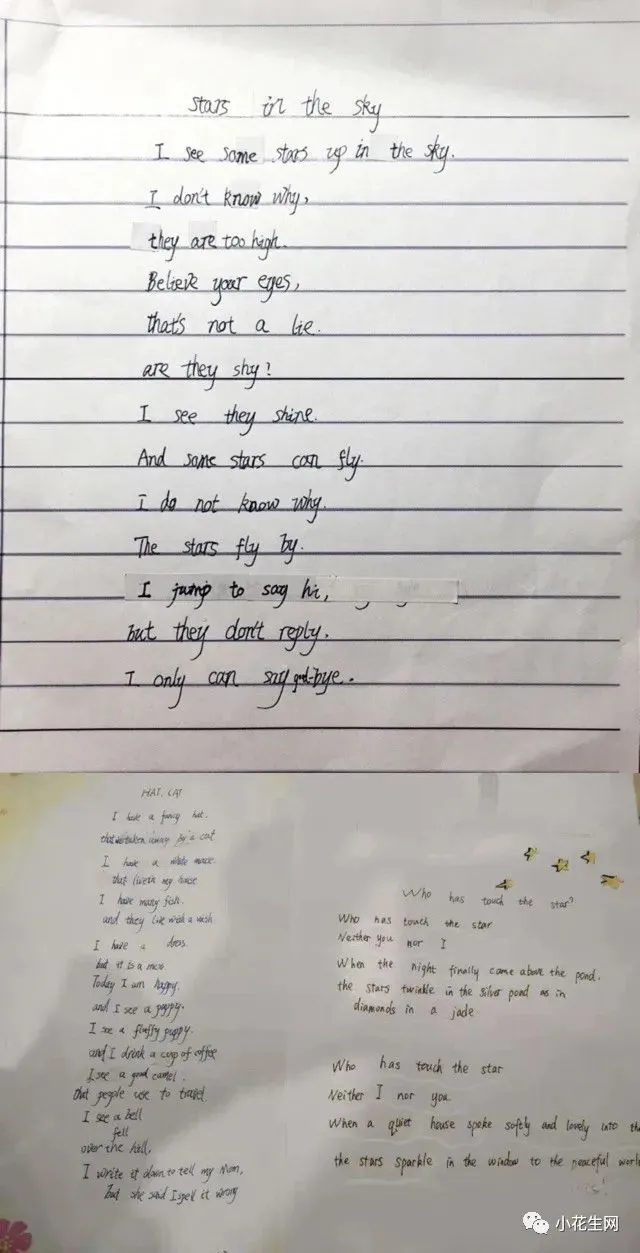 stars in the sky
I see some stars up in the sky.
I don't know why,
they are too high.
Believe your eyes,
that's not a lie.
are they shy?
I see they shine.
And some stars can fly.
I do not know why.
The stars fly by.
I jump to say hi,
but they don't reply.
I only can say good-bye.
HAT, CAT
I have a funny hat.
that taken away by a cat
I have a white mouse
that live in my house
I have many fish.
and they live with a wish.
I have a dress.
but it is a mess.
Today I am happy.
and I see a puppy.
I see a fluffy puppy.
and I drink a cup of coffee
I see a good camel.
that people use to travel.
I see a bell
fell
over the hill,
I write it down to tell my Mom,
but she said I spell it wrong
Who has touch the star?
Who has touch the star
Neither you nor I
When the night finally came above the pond.
the stars twinkle in the silver pond as in
diamonds in a jade
Who has touch the star
Neither I nor you.
When a quiet house spoke softly and lovely into the
the stars sparkle in the window to the peaceful world
小花生网